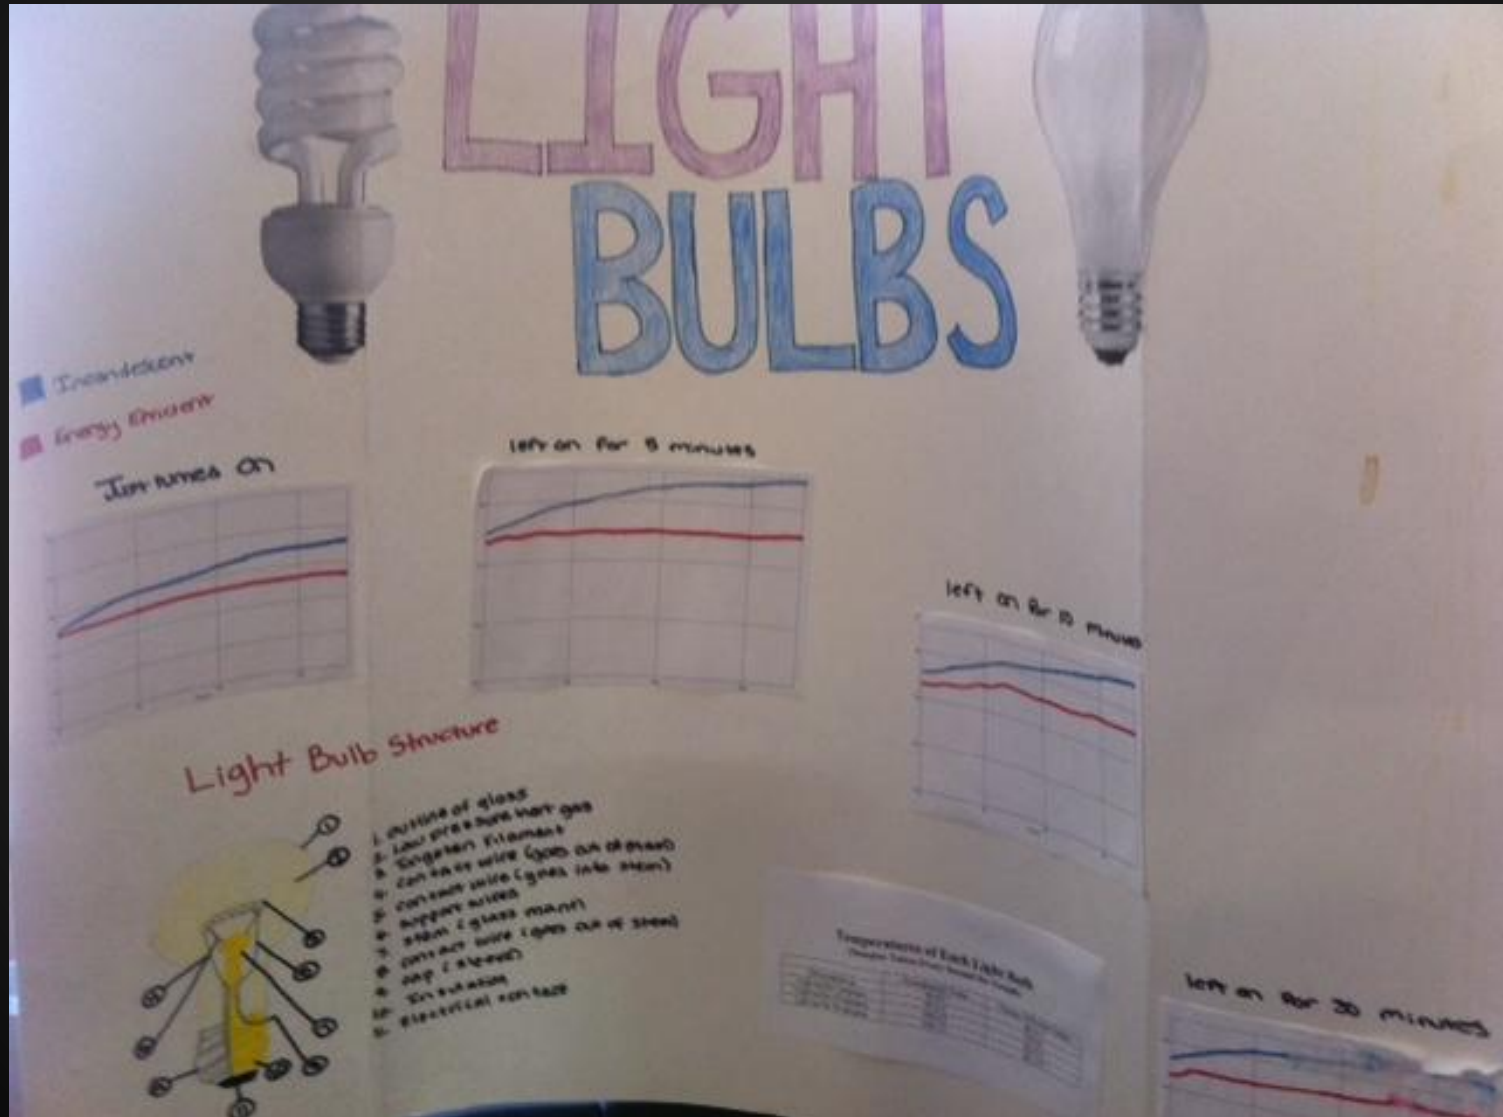 LIGHT
BULBS
Incandescent
Energy Efficient
Just turned On
left on for 5 minutes
left on for 10 minutes
Light Bulb Structure
1. outline of glass
2. Low pressure inert gas
3. Tungsten Filament
4. contact wire (goes out of stem)
5. contact wire (goes into stem)
6. support wires
7. stem (glass mount)
8. contact wire (goes out of stem)
9. cap (sleeve)
10. Insulation
11. electrical contact
Temperatures of Each Light Bulb
left on for 30 minutes